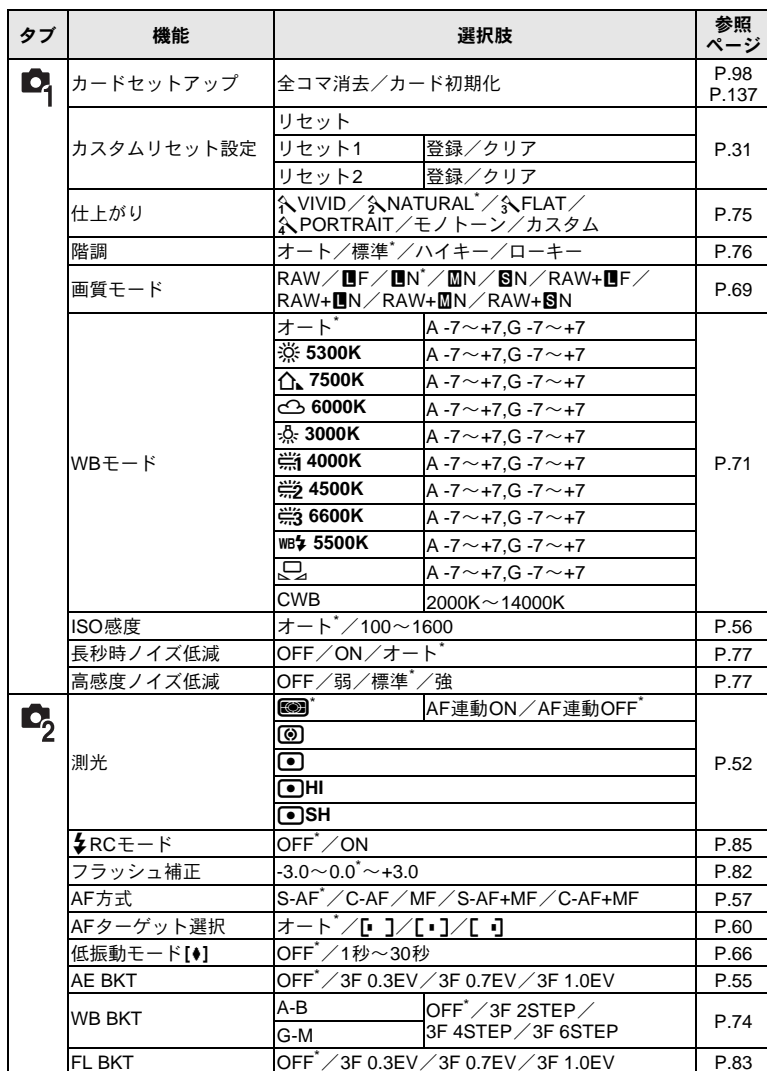 タブ 機能 選択肢 参照
ページ
1 カードセットアップ 全コマ消去／カード初期化 P.98
P.137
カスタムリセット設定 リセット P.31
リセット1 登録／クリア
リセット2 登録／クリア
仕上がり 1VIVID／2NATURAL*／3FLAT／ P.75
4PORTRAIT／モノトーン／カスタム
階調 オート／標準*／ハイキー／ローキー P.76
画質モード RAW／LF／LN*／MN／SN／RAW+LF／ P.69
RAW+LN／RAW+MN／RAW+SN
WBモード オート* A -7～+7,G -7～+7 P.71
5300K A -7～+7,G -7～+7
7500K A -7～+7,G -7～+7
6000K A -7～+7,G -7～+7
3000K A -7～+7,G -7～+7
1 4000K A -7～+7,G -7～+7
2 4500K A -7～+7,G -7～+7
3 6600K A -7～+7,G -7～+7
WB 5500K A -7～+7,G -7～+7
A -7～+7,G -7～+7
CWB 2000K～14000K
ISO感度 オート*／100～1600 P.56
長秒時ノイズ低減 OFF／ON／オート* P.77
高感度ノイズ低減 OFF／弱／標準*／強 P.77
2 測光 * AF連動ON／AF連動OFF* P.52
HI
SH
RCモード OFF*／ON P.85
フラッシュ補正 -3.0～0.0*～+3.0 P.82
AF方式 S-AF*／C-AF／MF／S-AF+MF／C-AF+MF P.57
AFターゲット選択 オート*／[▪ ]／[▪]／[ ▪] P.60
低振動モード[♦] OFF*／1秒～30秒 P.66
AE BKT OFF*／3F 0.3EV／3F 0.7EV／3F 1.0EV P.55
WB BKT A-B OFF*／3F 2STEP／ P.74
G-M 3F 4STEP／3F 6STEP
FL BKT OFF*／3F 0.3EV／3F 0.7EV／3F 1.0EV P.83